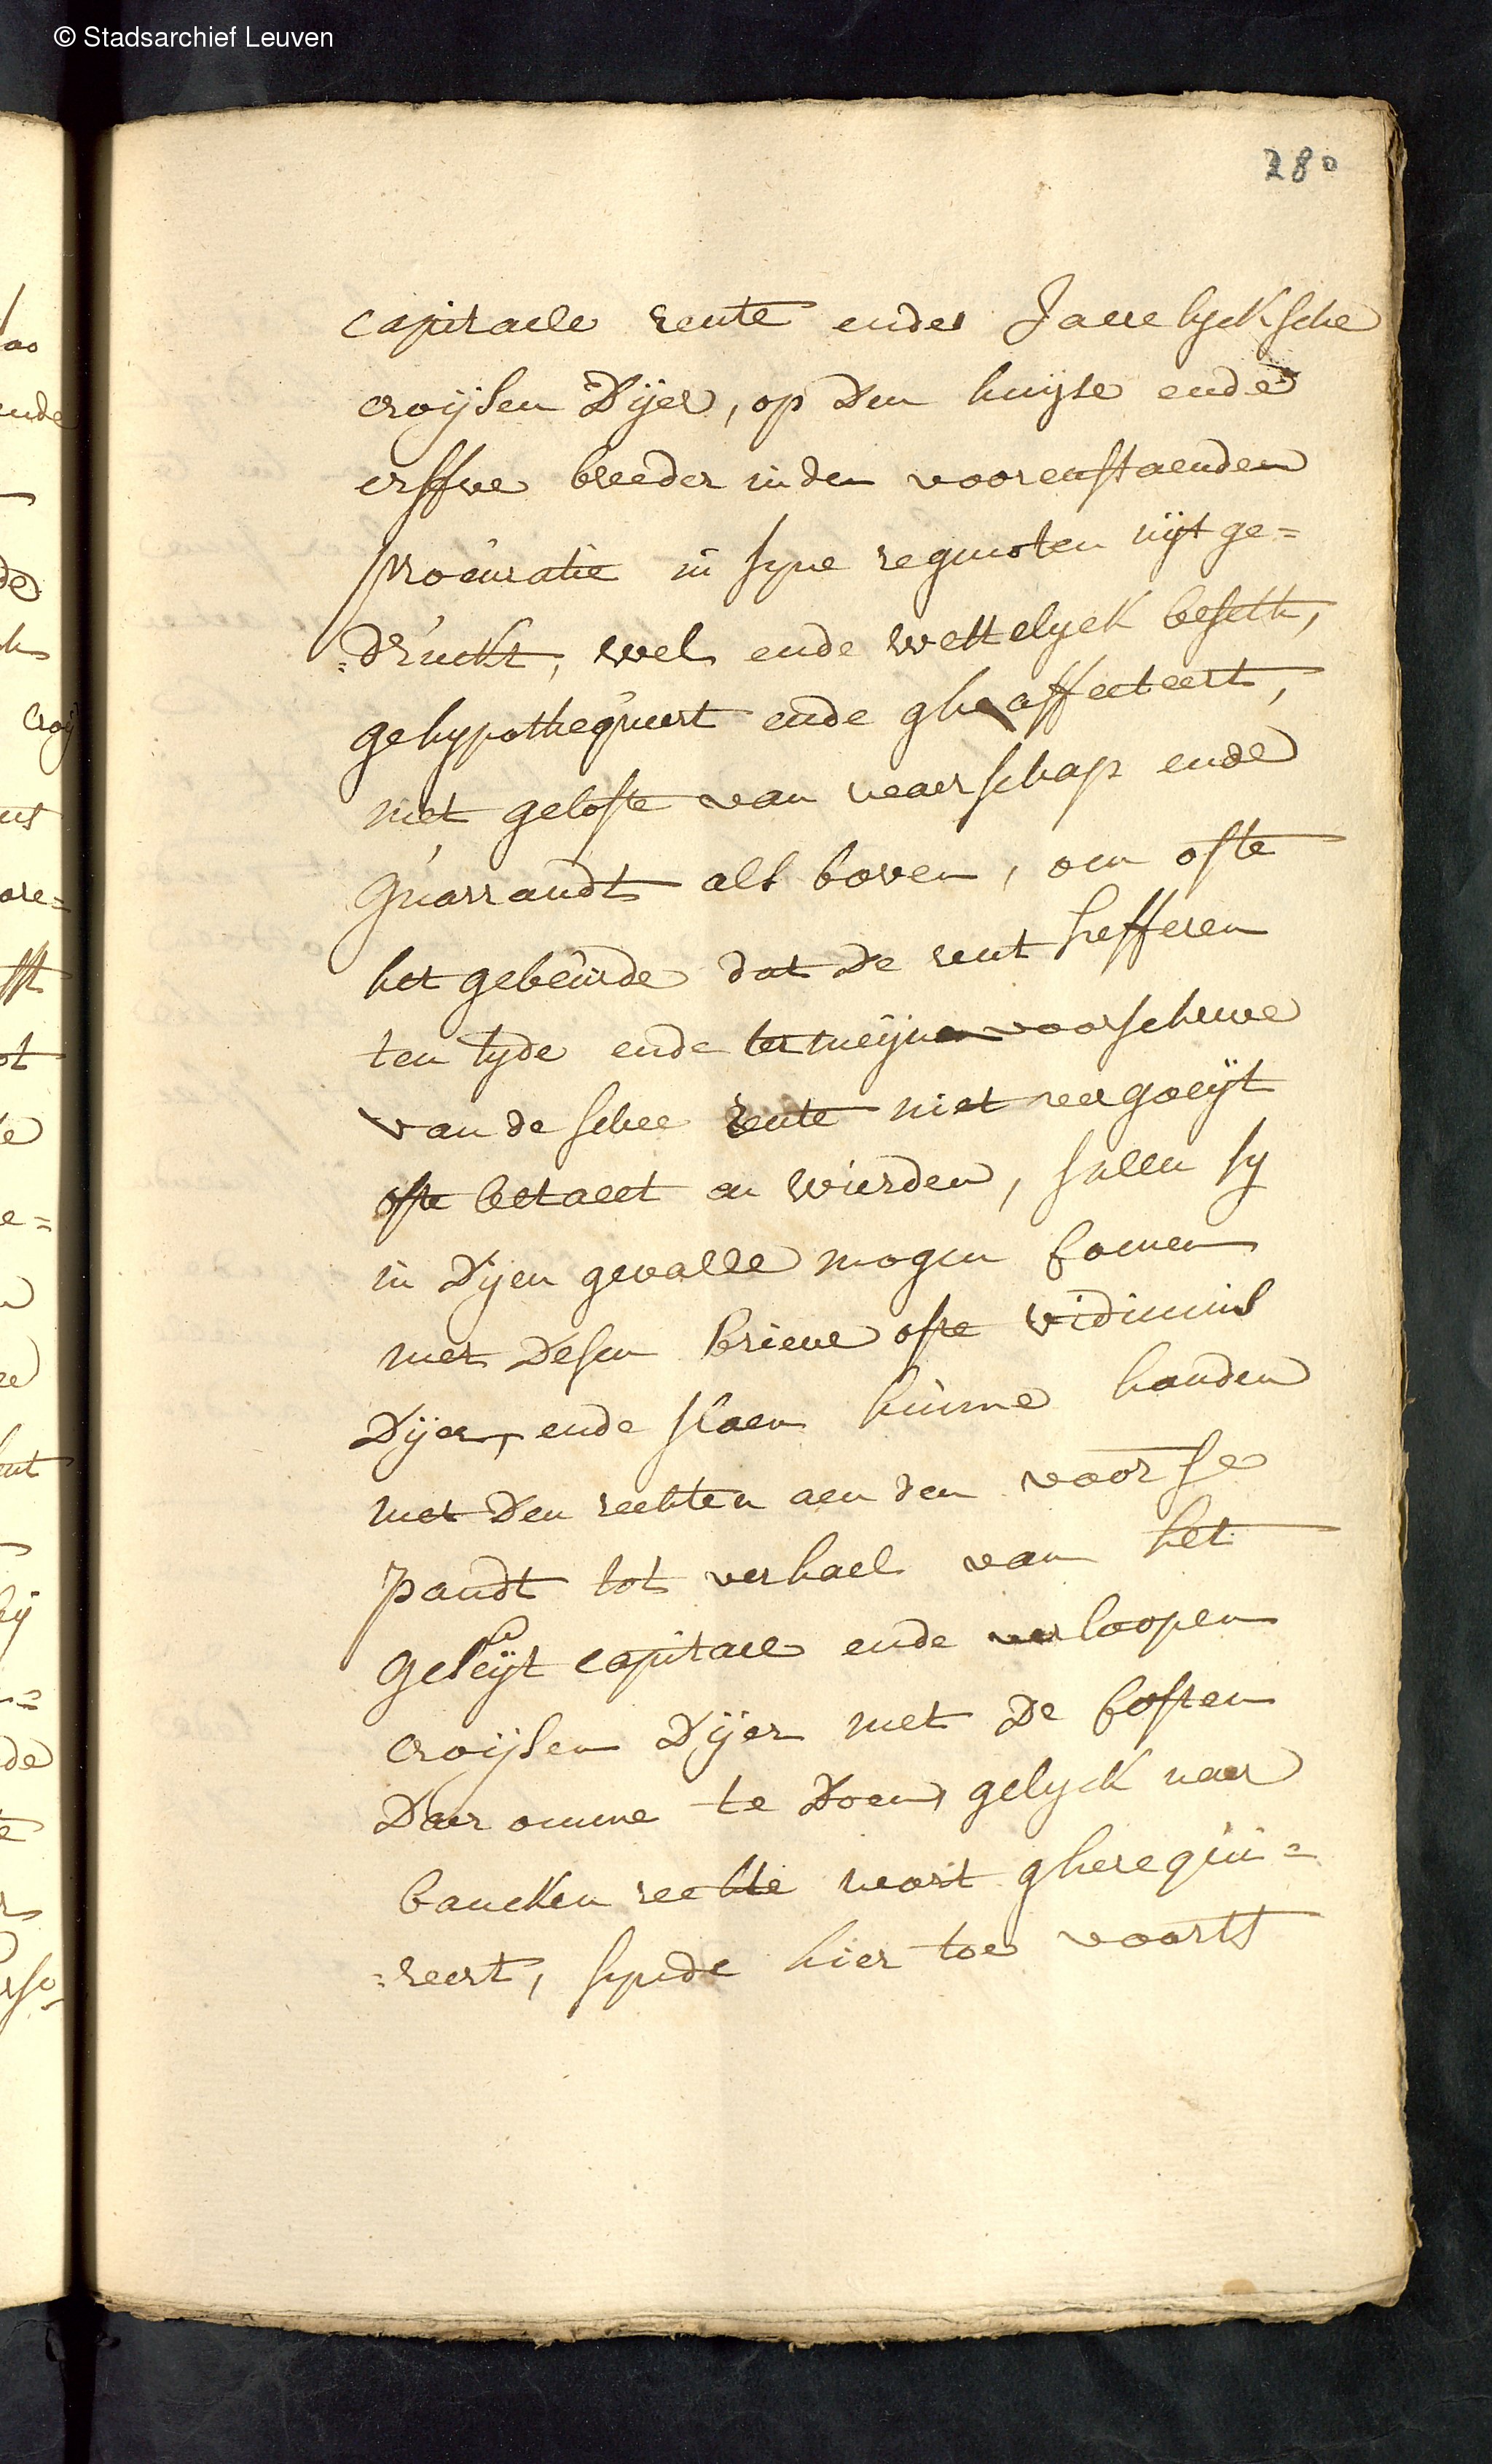 © Stadsarchief Leuven
280
capitaele rente ende Jaerelycksche
croijsen Dijer, op Den huijse ende
erffve breeder in den voorenstaenden
procuratie in syne regenoten uijt ge=
=Druckt, wel ende wettelyck besedt,
gehypothequeert ende gheaffecteert,
met gelofte van waerschap ende
guarrandt als boven, om ofte
het gebeurde dat De rent hefferen
ten tyde ende termeijnen voorschreve
van de selve rente niet vergoeijt
ofte betaelt en wierden, sullen sy
in Dijen gevalle mogen comen
met Desen brieve ofte vidimus
Dijer, ende slaen hunne handen
met Den rechten aen den voors
pandt tot verhael van het
geleijt capitael ende verloopen
croijsen Dijer met De costen
Daer omme te Doen, gelyck naer
bancken rechte wort gherequi=
=reert, synde hier toe voorts